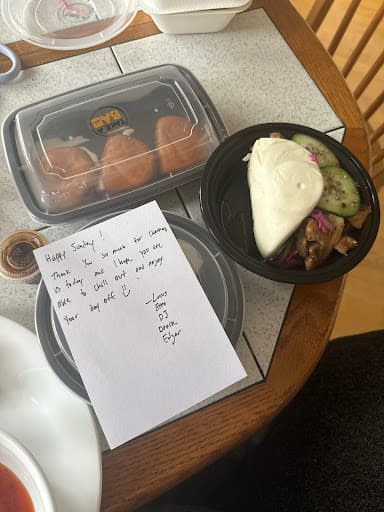 Happy Sunday !
Thank you so much for choosing
us today and I hope you are
able to chill out and enjoy
your day off :)
—Lucas
DJ
Derek
Edgar
BAO